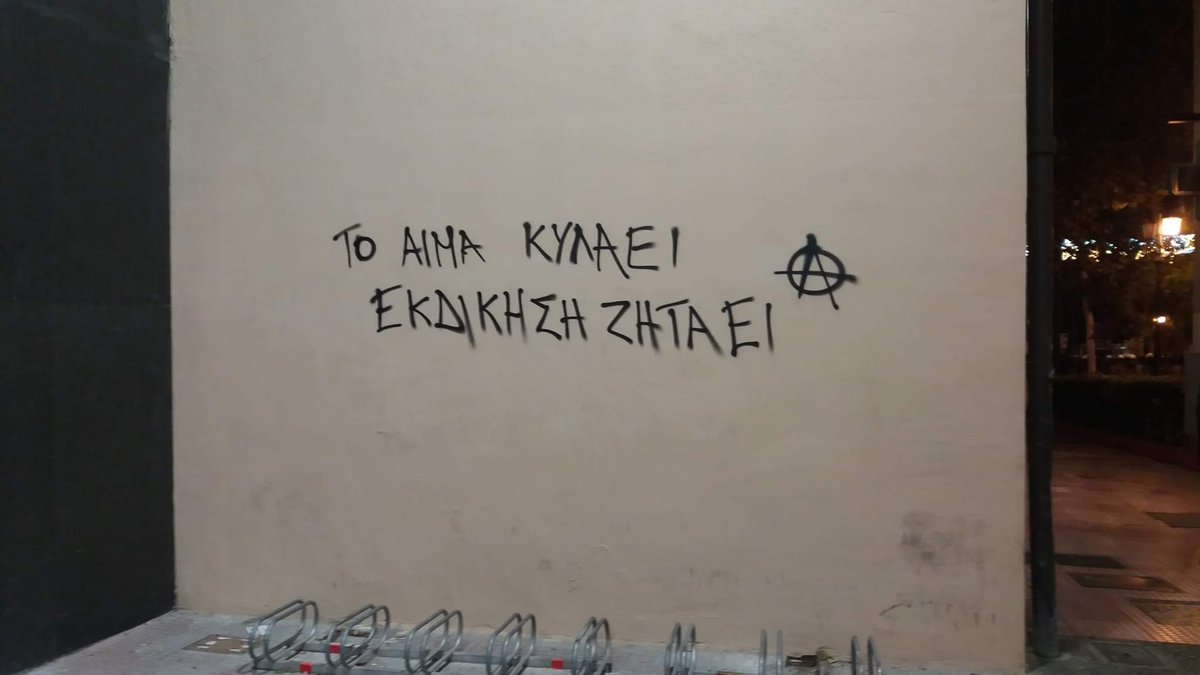 ΤΟ ΑΙΜΑ ΚΥΛΑΕΙ
ΕΚΔΙΚΗΣΗ ΖΗΤΑΕΙ